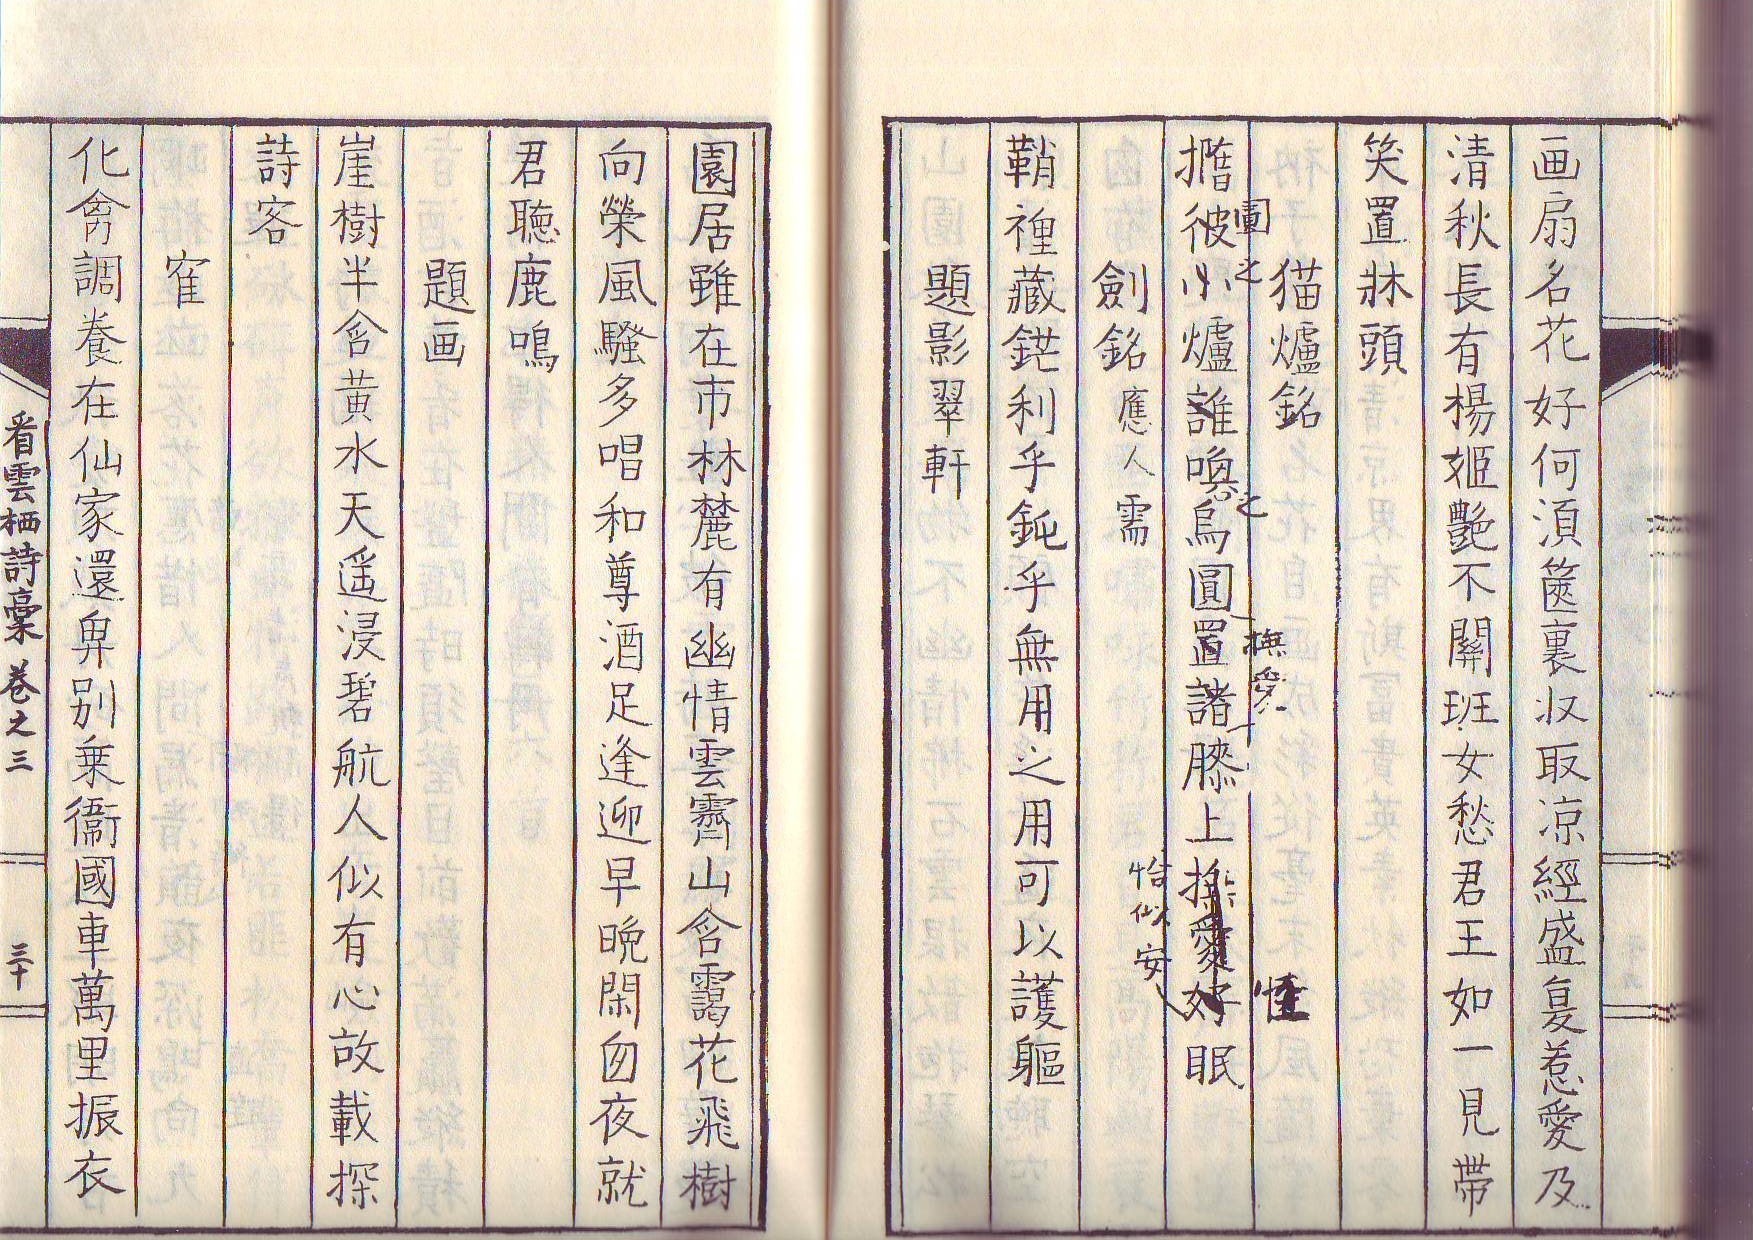 画扇名花好何須篋裏収取涼經盛夏惹愛及
清秋長有楊姫艷不關班女愁君王如一見帯
笑置牀頭
猫爐銘
擔彼小爐誰喚烏圓置諸膝上
眠
圖之
之
撫愛
恰似安
劍銘 應人需
鞘裡藏鋩利乎鈍乎無用之用可以護軀
題影翠軒
園居雖在市林麓有幽情雲霽山含靄花飛樹
向榮風騷多唱和尊酒足逢迎早晩閑囱夜就
君聴鹿鳴
題画
崖樹半含黄水天遥浸碧航人似有心故載探
詩客
寉
化禽調養在仙家還㢲別乗衞國車萬里振衣
看雲栖詩稾 巻之三
三十